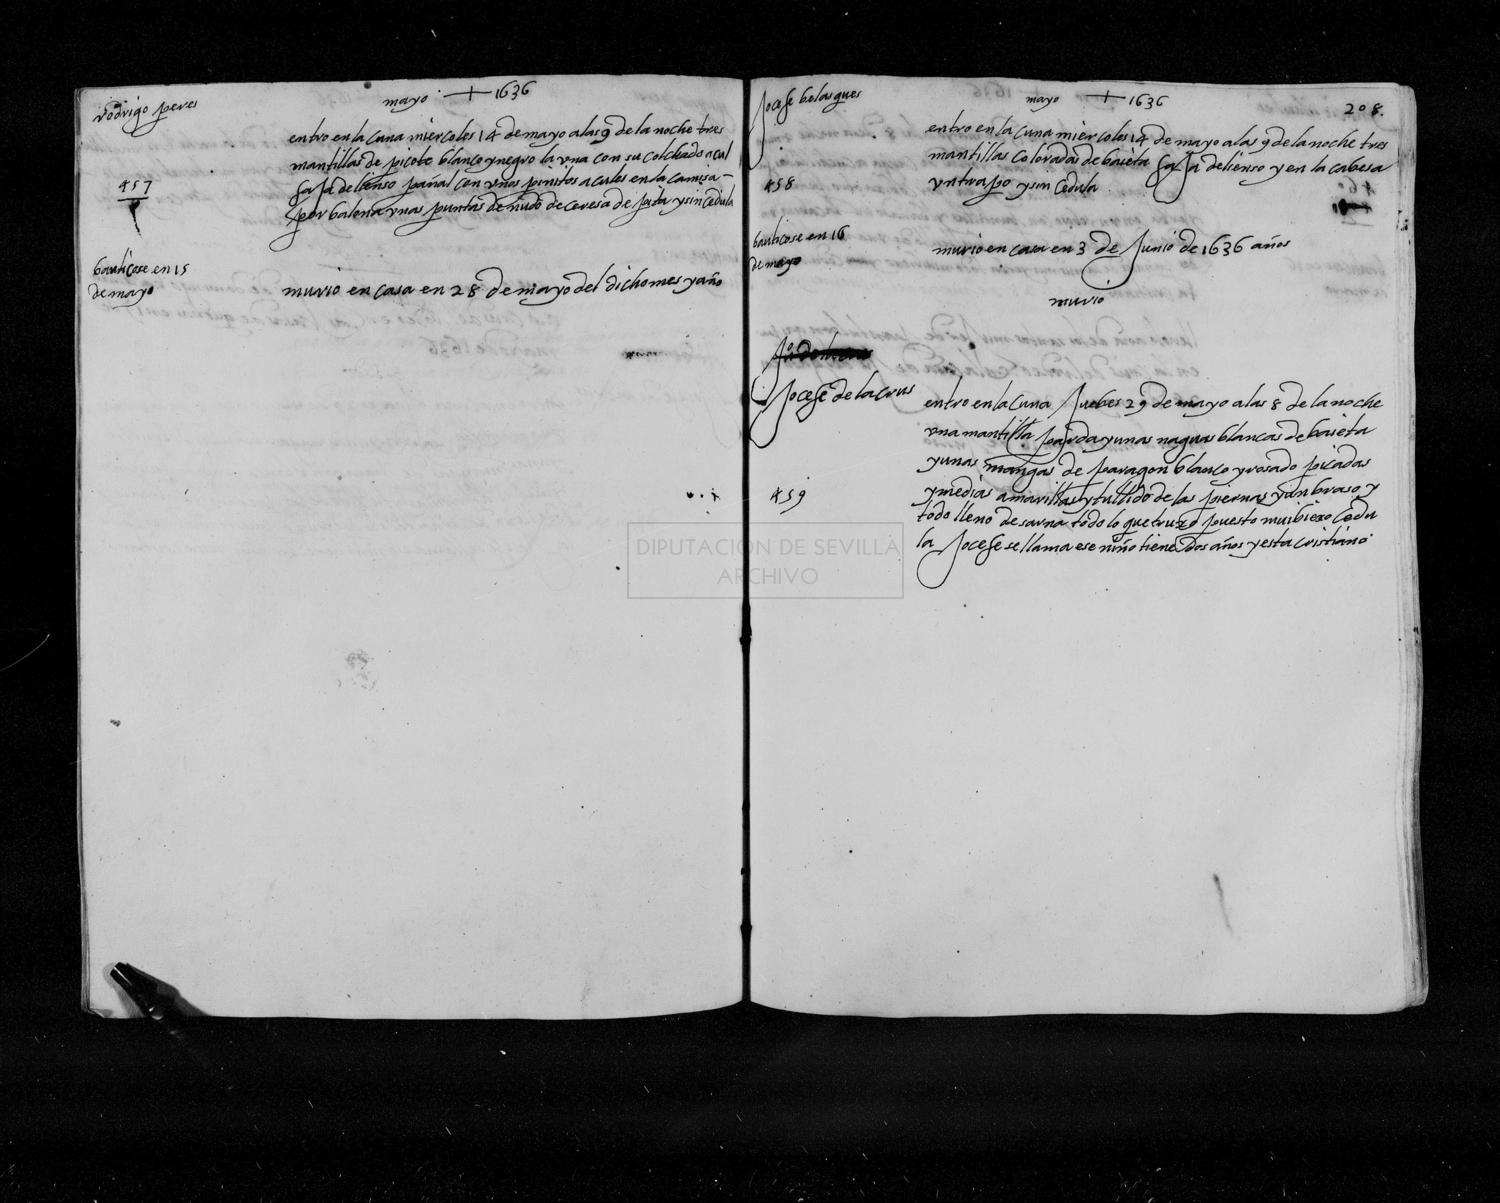 rodrigo peres
mayo + 1636
entro en la cuna miercoles 14 de mayo a las 9 de la noche tres
mantillas de picote blanco y negro la vna con su colchado acul
faja de lienso pañal con vnos pinitos acules en la camisa
por balona vnas puntas de nudo de ceresa de pita y sin cedula
457
bauticose en 15
de mayo
murio en casa en 28 de mayo del dicho mes y año
Jocefe belasques
mayo + 1636
208.
entro en la cuna miercoles 14 de mayo a las 9 de la noche tres
mantillas coloradas de baieta faja de lienso y en la cabesa
vn trapo y sin cedula
458
bauticose en 16
de mayo
murio en casa en 3 de Junio de 1636 años
murio
Jocefe de la crus
entro en la cuna Juebes 29 de mayo a las 8 de la noche
vna mantilla parda y unas naguas blancas de baieta
y unas mangas de paragon blanco y rosado picadas
y medias amarillas y tullido de las piernas y un braso y
todo lleno de sarna todo lo que truxo puesto mui biexo cedu
la Jocefe se llama ese niño tiene dos años y esta cristiano
459
DIPUTACIÓN DE SEVILLA
ARCHIVO